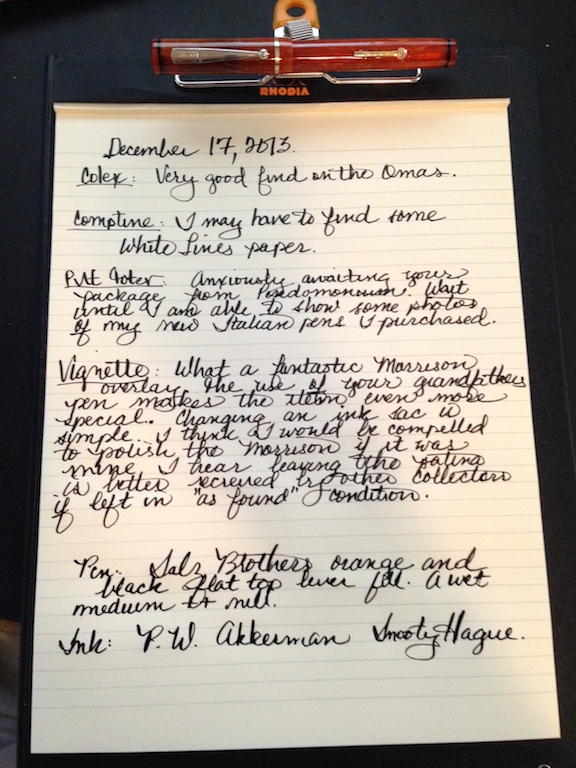 RHODIA
December 17, 2013.
Colex: Very good find on the Omas.
Comptine: I may have to find some
White Lines paper.
Pvt : Anxiously awaiting your
package from . Wait
until I am able to show some photos
of my new Italian pens I purchased.
Vignette: What a fantastic Morrison
overlay. The use of your grandfathers
pen makes the item even more
special. Changing an ink sac is
simple. I think I would be compelled
to polish the Morrison if it was
mine. I hear leaving the patina
is better by other collectors
if left in "as found" condition.
Pen: Salz Brothers orange and
black flat top lever fill. A wet
medium nib.
Ink: P. W. Akkerman Snooty Hague.